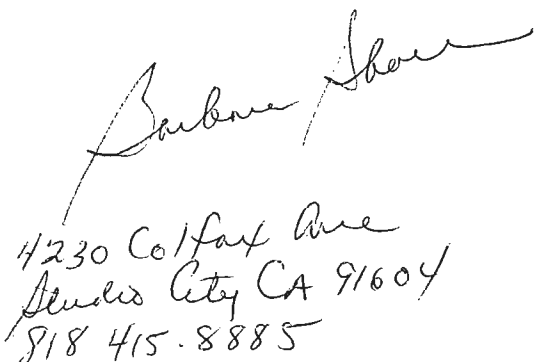 Barbara Shore
4230 Colfax Ave
Studio City CA 91604
818 415.8885